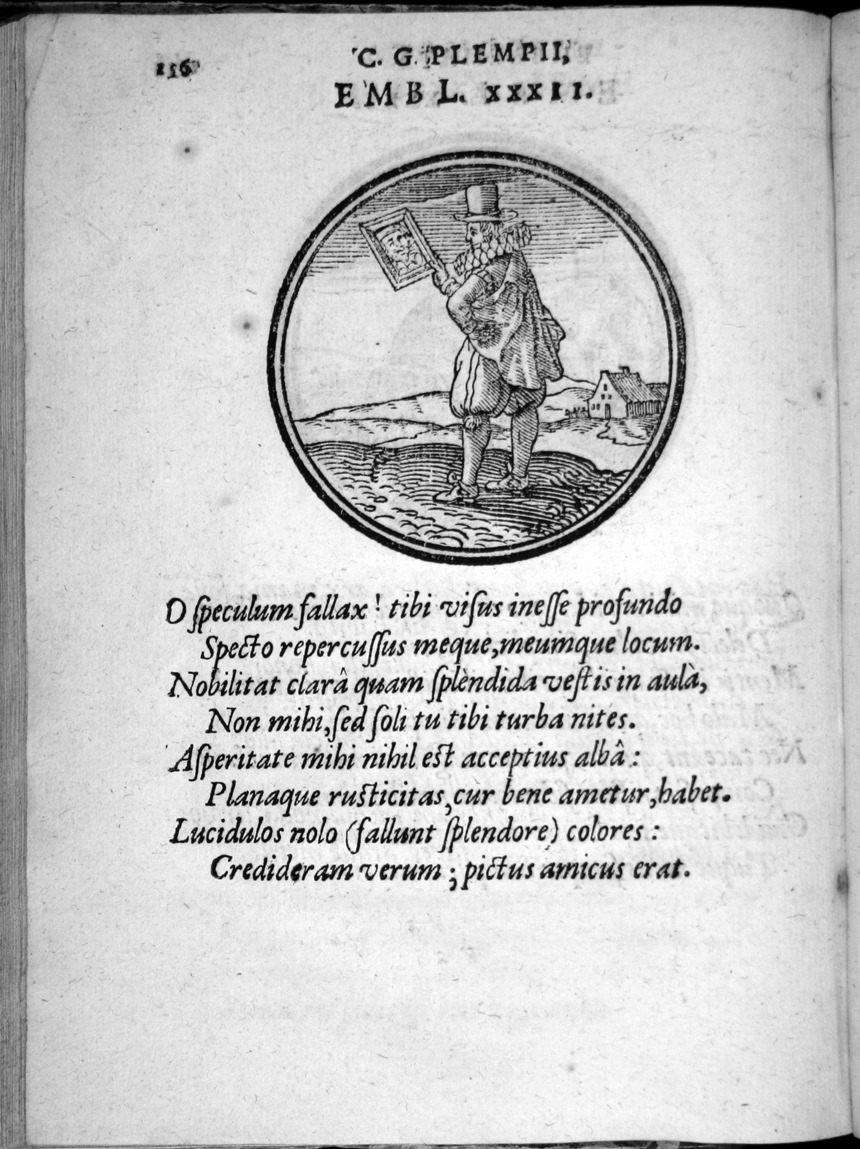 156
C. G. PLEMPII,
EMBL. XXXII.
O ſpeculum fallax! tibi viſus ineſſe profundo
Specto repercuſſus meque, meumque locum.
Nobilitat clarâ quam ſplendida veſtis in aulà,
Non mihi, ſed ſoli tu tibi turba nites.
Aſperitate mihi nihil est acceptius albâ:
Planaque ruſticitas, cur bene ametur, habet.
Lucidulos nolo (fallunt ſplendore) colores:
Credideram verum; pictus amicus erat.